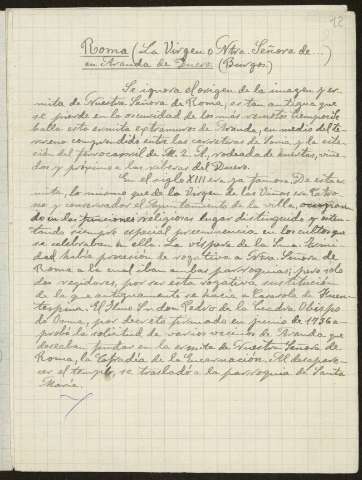 12
Roma (La Virgen o Ntra. Señora de...)
en Aranda de Duero (Burgos)
Se ignora el origen de la imagen y er-
mita de Nuestra Señora de Roma, es tan antigua que
se pierde en la oscuridad de los más remotos tiempos. Se
halla esta ermita extramuros de Aranda, en medio del te-
rreno comprendido entre las carreteras de Soria y la esta-
ción del ferrocarril de M. Z. A., rodeada de huertas, viñe-
dos, y próximo a las riberas del Duero.
En el siglo XIII era ya famosa. De esta er-
mita, lo mismo que de la Virgen de las Viñas era Patro-
no y conservador el Ayuntamiento de la villa, ocupan-
do en las funciones religiosas lugar distinguido y osten-
tando siempre especial preeminencia en los cultos que
se celebraban en ella. La víspera de la Sma. Trini-
dad había procesión de rogativa a Ntra. Señora de
Roma a la cual iban ambas parroquias; pero solo
dos regidores, por ser esta rogativa sustitución
de la que antiguamente se hacía a Casarola de Fuen-
tespina. El Ilmo Sr. don Pedro de la Cuadra, Obispo
de Osma, por decreto firmado en junio de 1736 a-
probó la solicitud de varios vecinos de Aranda que
deseaban fundar en la ermita de Nuestra Señora de
Roma, la Cofradía de la Encarnación. Al desapare-
cer el templo, se trasladó a la parroquia de Santa
María.